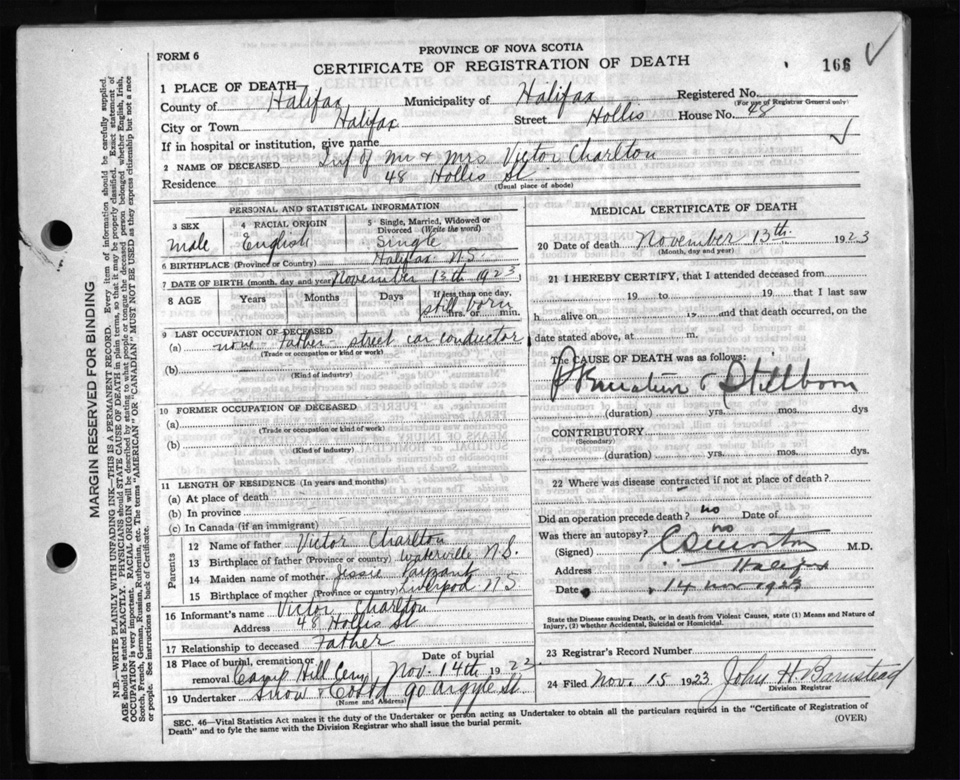 FORM 6
PROVINCE OF NOVA SCOTIA
CERTIFICATE OF REGISTRATION OF DEATH
166
1 PLACE OF DEATH
County of Halifax Municipality of Halifax Registered No.
(For use of Registrar General only)
City or Town Halifax Street Hollis House No. 48
If in hospital or institution, give name
2 NAME OF DECEASED Inf of Mr & Mrs Victor Charlton
Residence 48 Hollis St
(Usual place of abode)
PERSONAL AND STATISTICAL INFORMATION
3 SEX 4 RACIAL ORIGIN 5 Single, Married, Widowed or Divorced (Write the word)
male English Single
6 BIRTHPLACE (Province or Country) Halifax N.S.
7 DATE OF BIRTH (month, day and year) November 13th 1923
8 AGE Years Months Days If less than one day, hrs. or min.
still born
9 LAST OCCUPATION OF DECEASED
(a) none - Father - street car conductor
(Trade or occupation or kind of work)
(b)
(Kind of industry)
10 FORMER OCCUPATION OF DECEASED
(a)
(Trade or occupation or kind of work)
(b)
(Kind of industry)
11 LENGTH OF RESIDENCE (In years and months)
(a) At place of death
(b) In province
(c) In Canada (if an immigrant)
Parents
12 Name of father Victor Charlton
13 Birthplace of father (Province or country) Waterville N.S.
14 Maiden name of mother Jessie Payzant
15 Birthplace of mother (Province or country) Liverpool N S
16 Informant's name Victor Charlton
Address 48 Hollis St
17 Relationship to deceased Father
18 Place of burial, cremation or removal Camp Hill Cem Date of burial Nov. 14th 1923
19 Undertaker Snow & Co Ltd 90 Argyle St
(Name and Address)
MEDICAL CERTIFICATE OF DEATH
20 Date of death November 13th 1923
(Month, day and year)
21 I HEREBY CERTIFY, that I attended deceased from
19 to 19 that I last saw
h alive on 19 and that death occurred, on the
date stated above, at m.
The CAUSE OF DEATH was as follows:
Stillborn
(duration) yrs. mos. dys
CONTRIBUTORY
(Secondary)
(duration) yrs. mos. dys.
22 Where was disease contracted if not at place of death?
Did an operation precede death? no Date of
Was there an autopsy? no
(Signed) M.D.
Address Halifax
Date 14 Nov 1923
State the Disease causing Death, or in death from Violent Causes, state (1) Means and Nature of
Injury, (2) whether Accidental, Suicidal or Homicidal.
23 Registrar's Record Number
24 Filed Nov. 15 1923 John H Barnstead
Division Registrar
SEC. 46—Vital Statistics Act makes it the duty of the Undertaker or person acting as Undertaker to obtain all the particulars required in the "Certificate of Registration of
Death" and to fyle the same with the Division Registrar who shall issue the burial permit.
(OVER)
MARGIN RESERVED FOR BINDING
N.B.—WRITE PLAINLY WITH UNFADING INK—THIS IS A PERMANENT RECORD. Every item of information should be carefully supplied.
AGE should be stated EXACTLY. PHYSICIANS should STATE CAUSE OF DEATH in plain terms, so that it may be properly classified. Exact statement of
OCCUPATION is very important. RACIAL ORIGIN will be described by stating to what people or tongue the deceased person belonged whether English, Irish,
Scotch, French, German, Russian, Ruthenian, etc. The terms "AMERICAN" or "CANADIAN" MUST NOT BE USED as they express citizenship but not a race
or people. See instructions on back of Certificate.